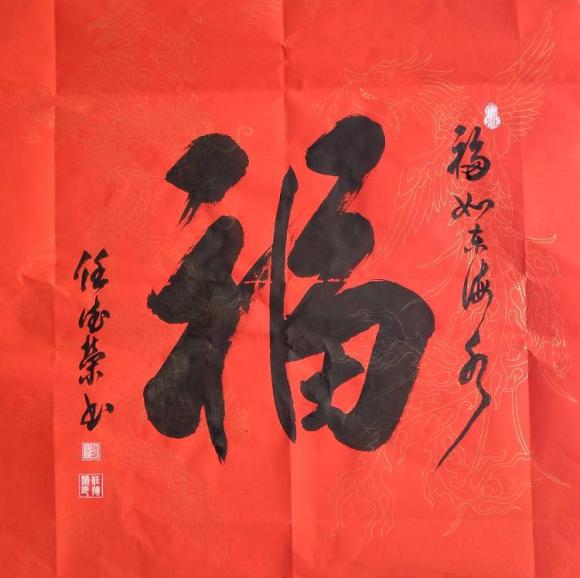 福如东海水
福
任德荣书